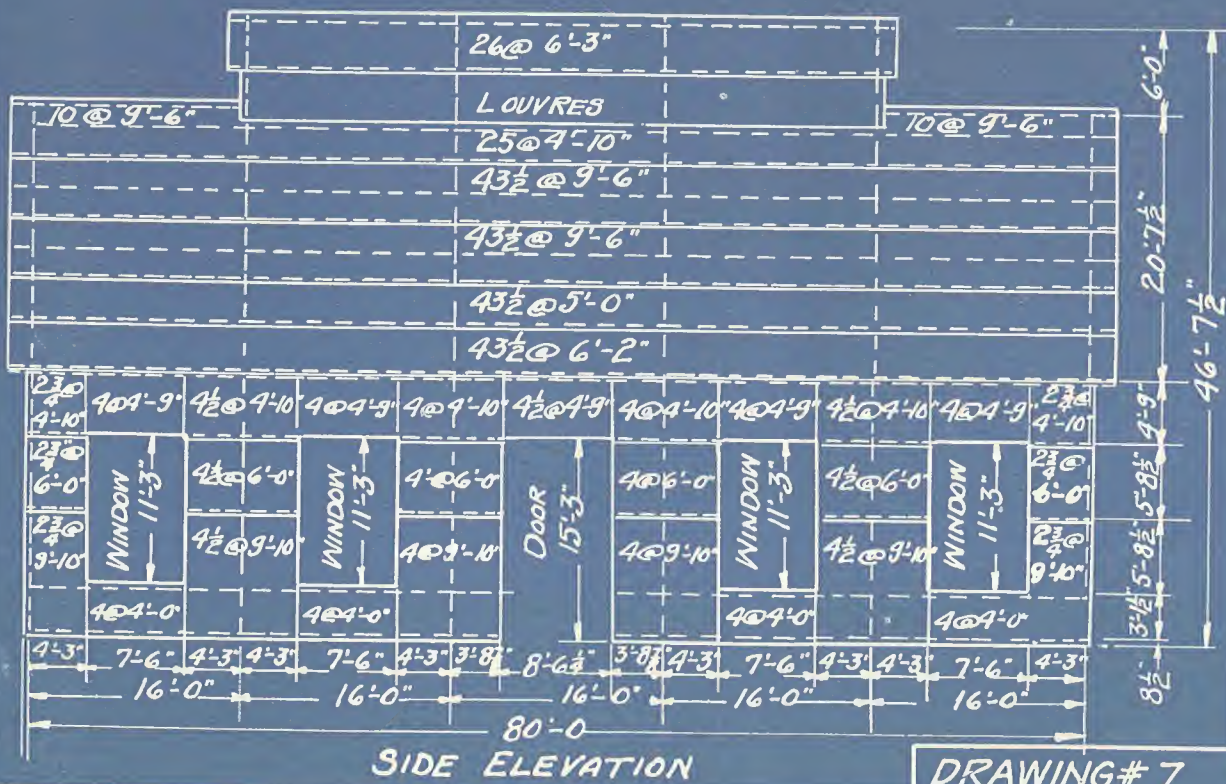 26@ 6'-3"
LOUVRES
10 @ 9'-6" 10 @ 9'-6"
25@4'-10"
43½ @ 9'-6"
43½ @ 9'-6"
43½ @ 5'-0"
43½ @ 6'-2"
2¾@ 4'-10" 4@4'-9" 4½@ 4'-10" 4@4'-9" 4@ 4'-10" 4½@4'-9" 4@4'-10" 4@4'-9" 4½@4'-10" 4@4'-9" 2¾@ 4'-10"
2¾"@ 6'-0" WINDOW 11'-3" 4½@6'-0" WINDOW 11'-3" 4'@6'-0" DOOR 15'-3" 4@6'-0" WINDOW 11'-3" 4½@6'-0" WINDOW 11'-3" 2¾@ 6'-0"
2¾@ 9'-10" 4½@9'-10" 4@9'-10" 4@9'-10" 4½@9'-10" 2¾@ 9'-10"
4@4'-0" 4@4'-0" 4@4'-0" 4@4'-0"
4'-3" 7'-6" 4'-3" 4'-3" 7'-6" 4'-3" 8'-6¼" 4'-3" 7'-6" 4'-3" 4'-3" 7'-6" 4'-3"
16'-0" 16'-0" 16'-0" 16'-0" 16'-0"
80'-0
6'-0"
20'-7½"
46'-7½"
4'-9"
5'-8½"
5'-8½"
3'-1½"
8½"
SIDE ELEVATION
DRAWING# 7